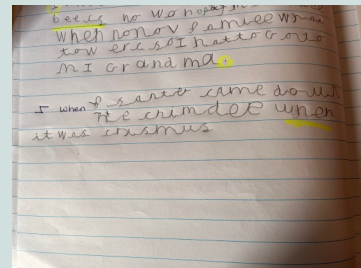 beecs no
when nonov famlee wras
tow ercso I hat to G ouo
m I Grandma.
5 when santer came down
the chimdee when
it was crismus